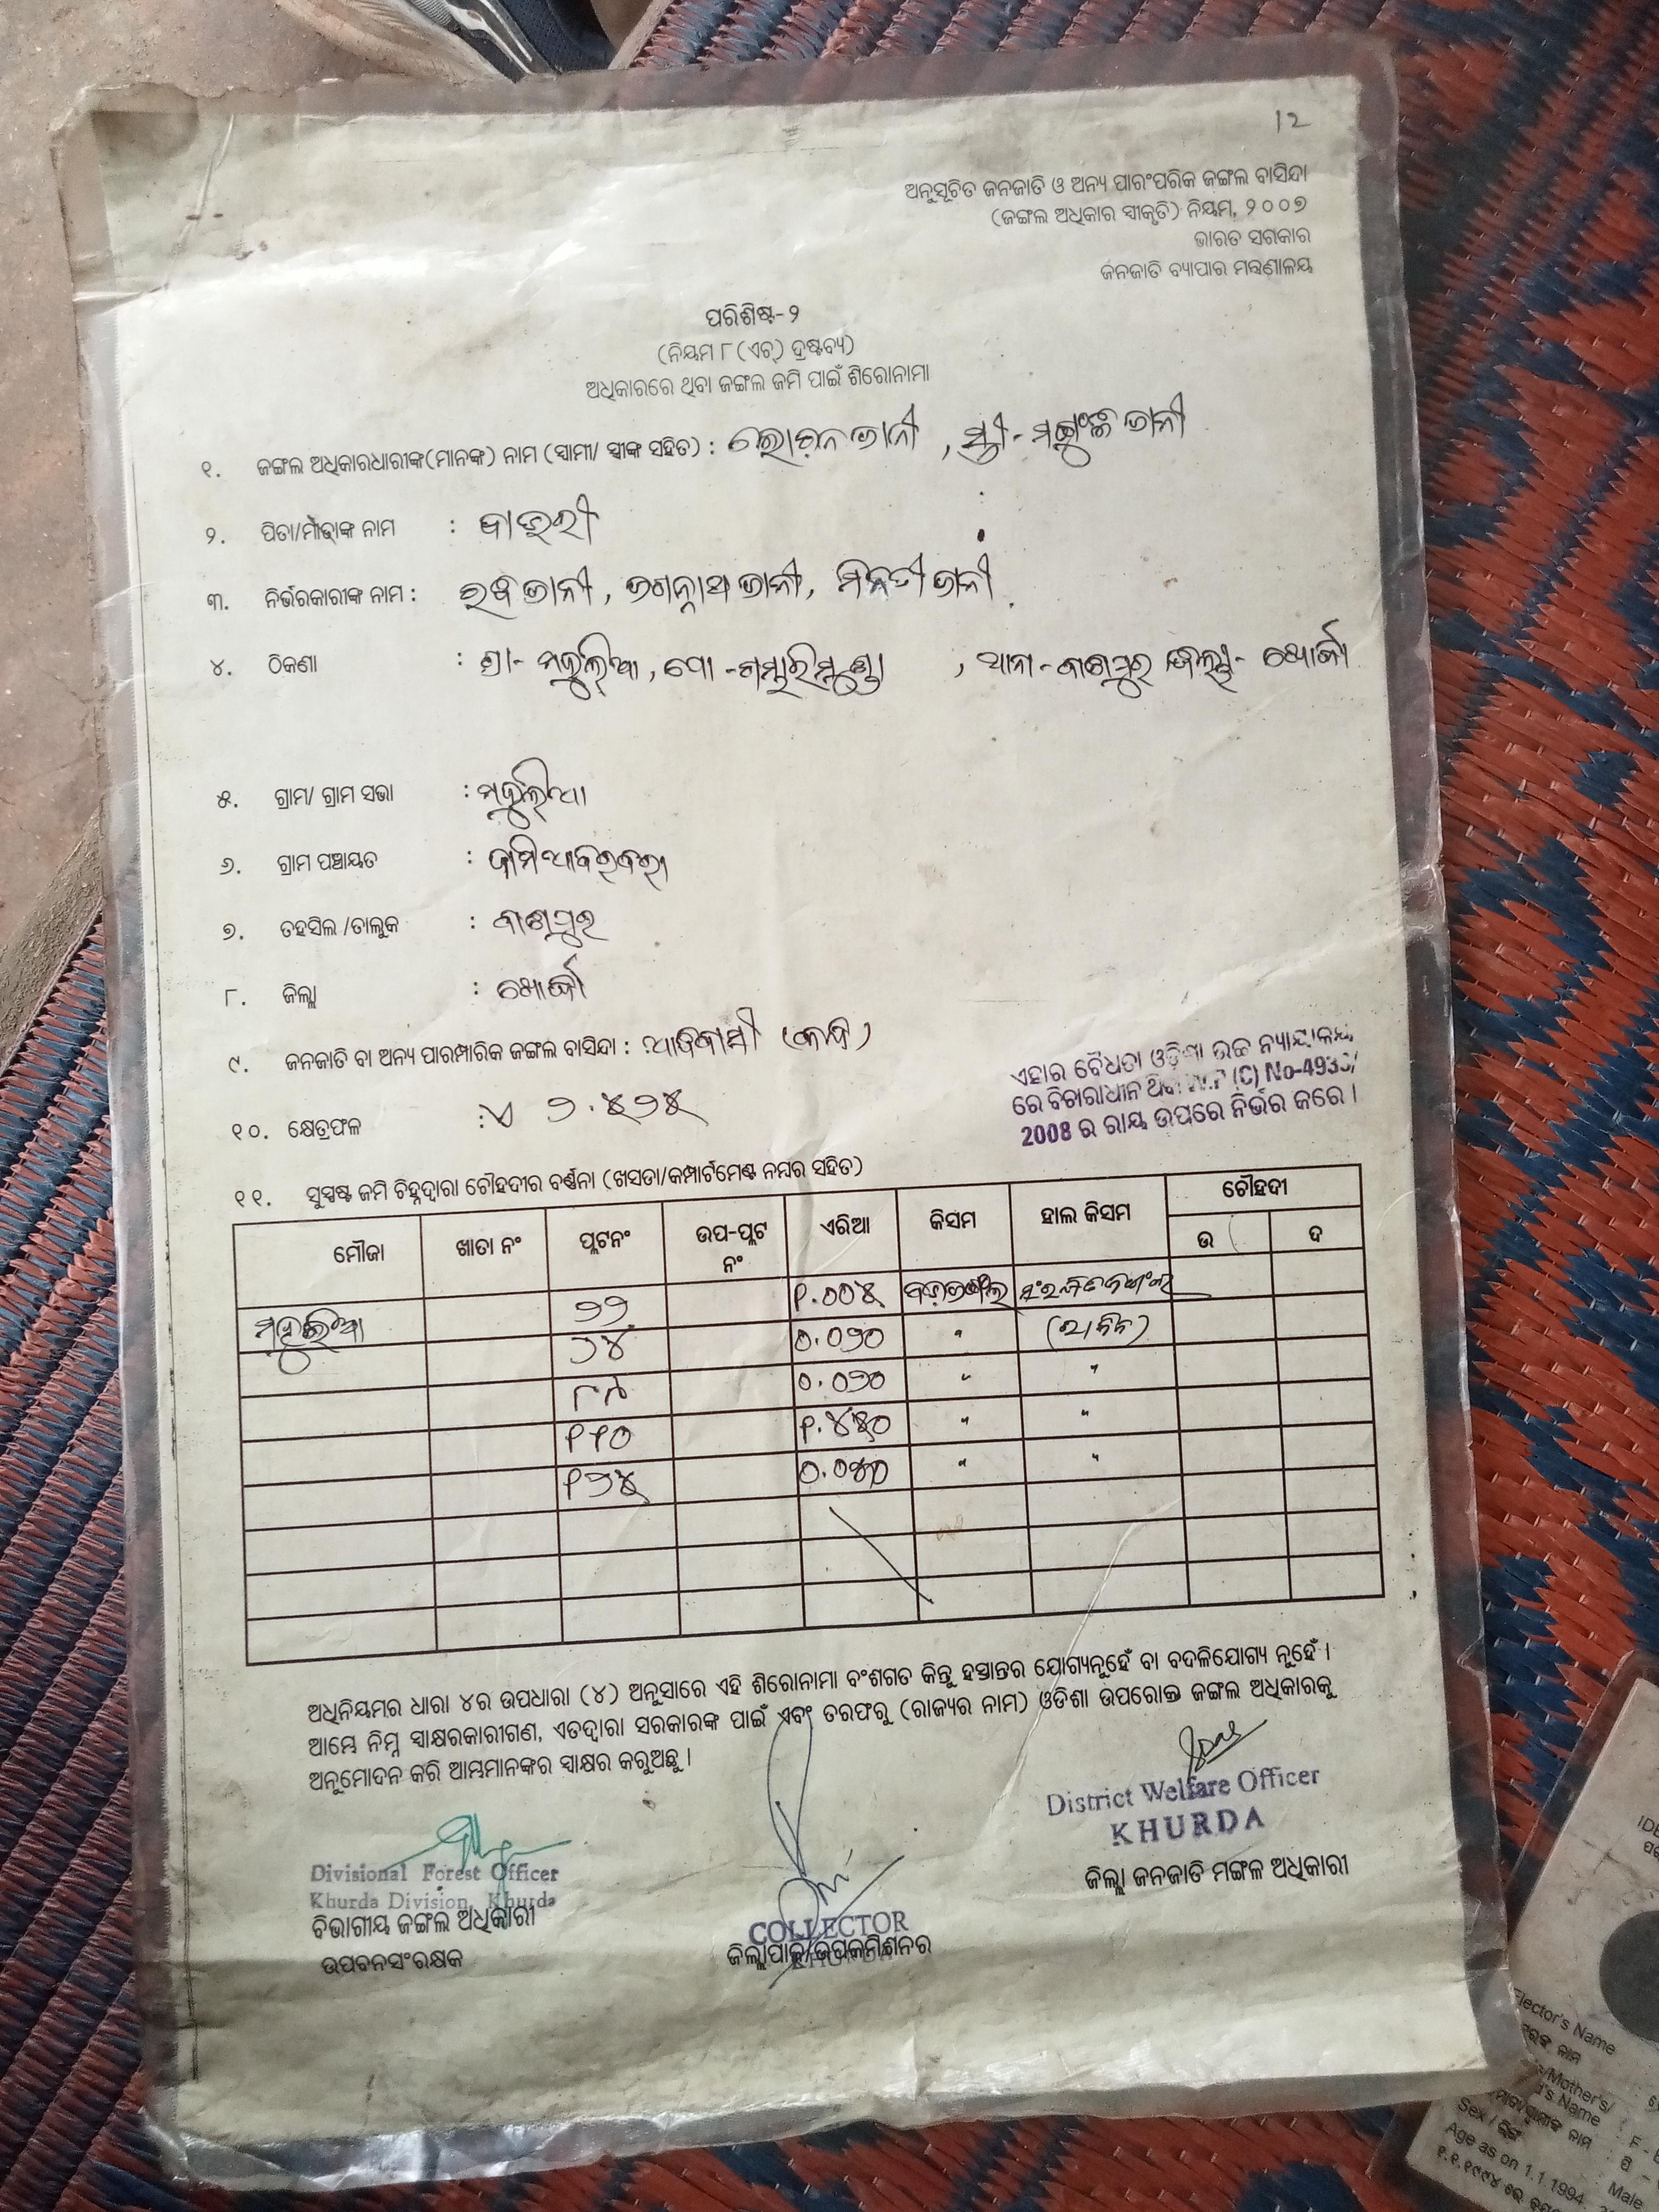 12
ଅନୁସୂଚିତ ଜନଜାତି ଓ ଅନ୍ୟ ପାରଂପରିକ ଜଙ୍ଗଲ ବାସିନ୍ଦା
(ଜଙ୍ଗଲ ଅଧିକାର ସ୍ୱୀକୃତି) ନିୟମ, ୨୦୦୭
ଭାରତ ସରକାର
ଜନଜାତି ବ୍ୟାପାର ମନ୍ତ୍ରଣାଳୟ
ପରିଶିଷ୍ଟ-୨
(ନିୟମ ୮ (ଏଚ୍) ଦ୍ରଷ୍ଟବ୍ୟ)
ଅଧିକାରରେ ଥିବା ଜଙ୍ଗଲ ଜମି ପାଇଁ ଶିରୋନାମା
୧. ଜଙ୍ଗଲ ଅଧିକାରଧାରୀଙ୍କ(ମାନଙ୍କ) ନାମ (ସ୍ୱାମୀ/ ସ୍ତ୍ରୀଙ୍କ ସହିତ) : ଲୋଚନ ଭାନୀ , ସ୍ତ୍ରୀ - ଭାନୀ
୨. ପିତା/ମାତାଙ୍କ ନାମ :
୩. ନିର୍ଭରକାରୀଙ୍କ ନାମ : ଭାନୀ, ଜଗନ୍ନାଥ ଭାନୀ, ମିନତୀ ଭାନୀ
୪. ଠିକଣା : ଗ୍ରା- , ପୋ - ଗମ୍ଭାରିମୁଣ୍ଡା , ଥାନା - ବାଣପୁର ଜିଲ୍ଲା - ଖୋର୍ଦ୍ଧା
୫. ଗ୍ରାମ/ ଗ୍ରାମ ସଭା :
୬. ଗ୍ରାମ ପଞ୍ଚାୟତ :
୭. ତହସିଲ /ତାଲୁକ : ବାଣପୁର
୮. ଜିଲ୍ଲା : ଖୋର୍ଦ୍ଧା
୯. ଜନଜାତି ବା ଅନ୍ୟ ପାରମ୍ପାରିକ ଜଙ୍ଗଲ ବାସିନ୍ଦା : ଆଦିବାସୀ (କନ୍ଧ)
ଏହାର ବୈଧତା ଓଡ଼ିଶା ଉଚ୍ଚ ନ୍ୟାୟାଳୟ
ରେ ବିଚାରାଧୀନ (C) No-4933/
2008 ର ରାୟ ଉପରେ ନିର୍ଭର କରେ ।
୧୦. କ୍ଷେତ୍ରଫଳ : ଏ ୨.୫୨୫
୧୧. ସୁସ୍ପଷ୍ଟ ଜମି ଚିହ୍ନଦ୍ୱାରା ଚୌହଦୀର ବର୍ଣ୍ଣନା (ଖସଡା/କମ୍ପାର୍ଟମେଣ୍ଟ ନମ୍ବର ସହିତ)
ମୌଜା ଖାତା ନଂ ପ୍ଲଟନଂ ଉପ-ପ୍ଲଟ ନଂ ଏରିଆ କିସମ ହାଲ କିସମ ଚୌହଦୀ
ଉ ଦ
୨୨ ୧.୦୦୫
୨୪ ୦.୦୨୦ "
୮୯ ୦.୦୨୦ " "
୧୧୦ ୧.୪୫୦ " "
୧୨୫ " "
ଅଧିନିୟମର ଧାରା ୪ର ଉପଧାରା (୪) ଅନୁସାରେ ଏହି ଶିରୋନାମା ବଂଶଗତ କିନ୍ତୁ ହସ୍ତାନ୍ତର ଯୋଗ୍ୟନୁହେଁ ବା ବଦଳିଯୋଗ୍ୟ ନୁହେଁ ।
ଆମ୍ଭେ ନିମ୍ନ ସ୍ୱାକ୍ଷରକାରୀଗଣ, ଏତଦ୍ୱାରା ସରକାରଙ୍କ ପାଇଁ ଏବଂ ତରଫରୁ (ରାଜ୍ୟର ନାମ) ଓଡିଶା ଉପରୋକ୍ତ ଜଙ୍ଗଲ ଅଧିକାରକୁ
ଅନୁମୋଦନ କରି ଆମ୍ଭମାନଙ୍କର ସ୍ୱାକ୍ଷର କରୁଅଛୁ ।
District Welfare Officer
KHURDA
ଜିଲ୍ଲା ଜନଜାତି ମଙ୍ଗଳ ଅଧିକାରୀ
Divisional Forest Officer
Khurda Division, Khurda
ବିଭାଗୀୟ ଜଙ୍ଗଲ ଅଧିକାରୀ
ଉପବନସଂରକ୍ଷକ
COLLECTOR
ଜିଲ୍ଲାପାଳ/ଉପକମିଶନର
Elector's Name
ନାମ
Mother's/
Name
ନାମ
Sex / ଲିଙ୍ଗ : Male
Age as on 1.1.1994
୧.୧.୧୯୯୪ ରେ